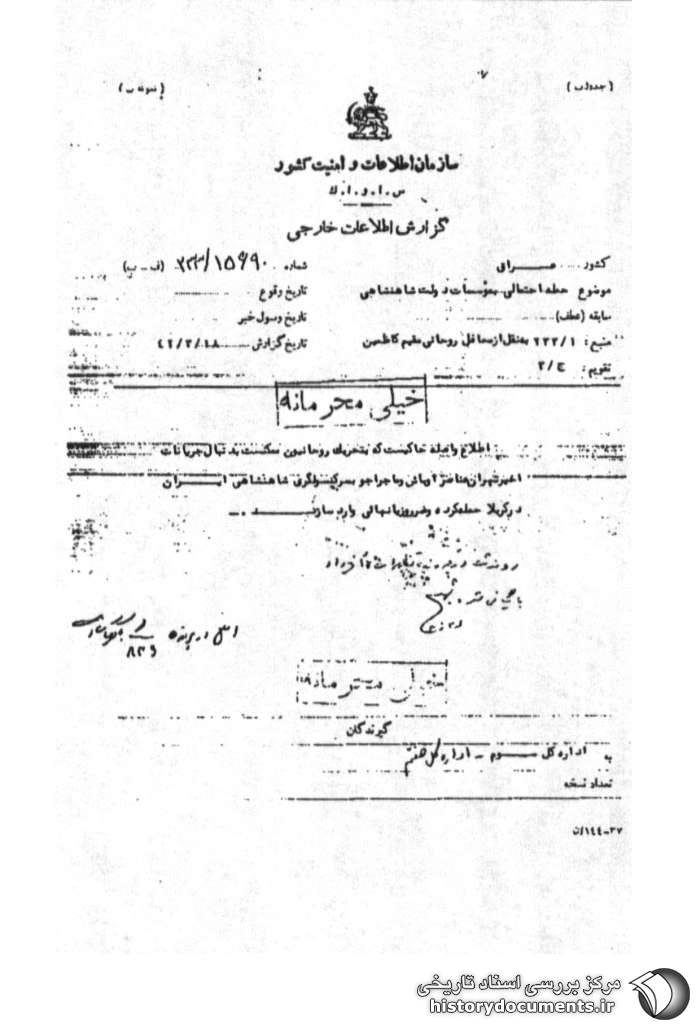 (جدول ب)
(نمونه ب)
سازمان اطلاعات و امنیت کشور
س.ا.و.ا.ک
گزارش اطلاعات خارجی
کشور عراق
شماره ۲۳۳/۱۵۶۹۰ (ف - ب)
موضوع حمله احتمالی بمؤسسات دولت شاهنشاهی
تاریخ وقوع
سابقه (عطف)
تاریخ وصول خبر
منبع: ۲۳۳/۱ به نقل از محافل روحانی مقیم کاظمین
تاریخ گزارش ۴۲/۳/۱۸
تقویم: ج/۲
خیلی محرمانه
اطلاع واصله حاکیست که بتحریک روحانیون ممکنست بدنبال جریانات
اخیر تهران عناصر اوباش و ماجراجو بسرکنسولگری شاهنشاهی ایران
در کربلا حمله کرده و ضرر و زیانهائی وارد سازند
خیلی محرمانه
گیرندگان
به اداره کل سوم - اداره کل هفتم
تعداد نسخه
۲۷-۱۴۴/ن
مرکز بررسی اسناد تاریخی
historydocuments.ir